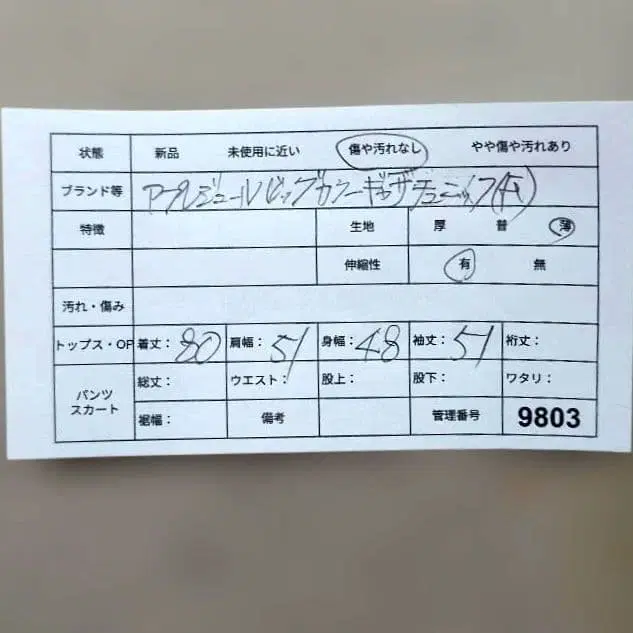 状態 新品 未使用に近い 傷や汚れなし やや傷や汚れあり
ブランド等 アプレジュールビッグカラーギャザチュニック
特徴 生地 厚 普 薄
伸縮性 有 無
汚れ・傷み
トップス・OP 着丈: 80 肩幅: 51 身幅: 48 袖丈: 51 裄丈:
パンツ スカート 総丈: ウエスト: 股上: 股下: ワタリ:
裾幅: 備考 管理番号 9803